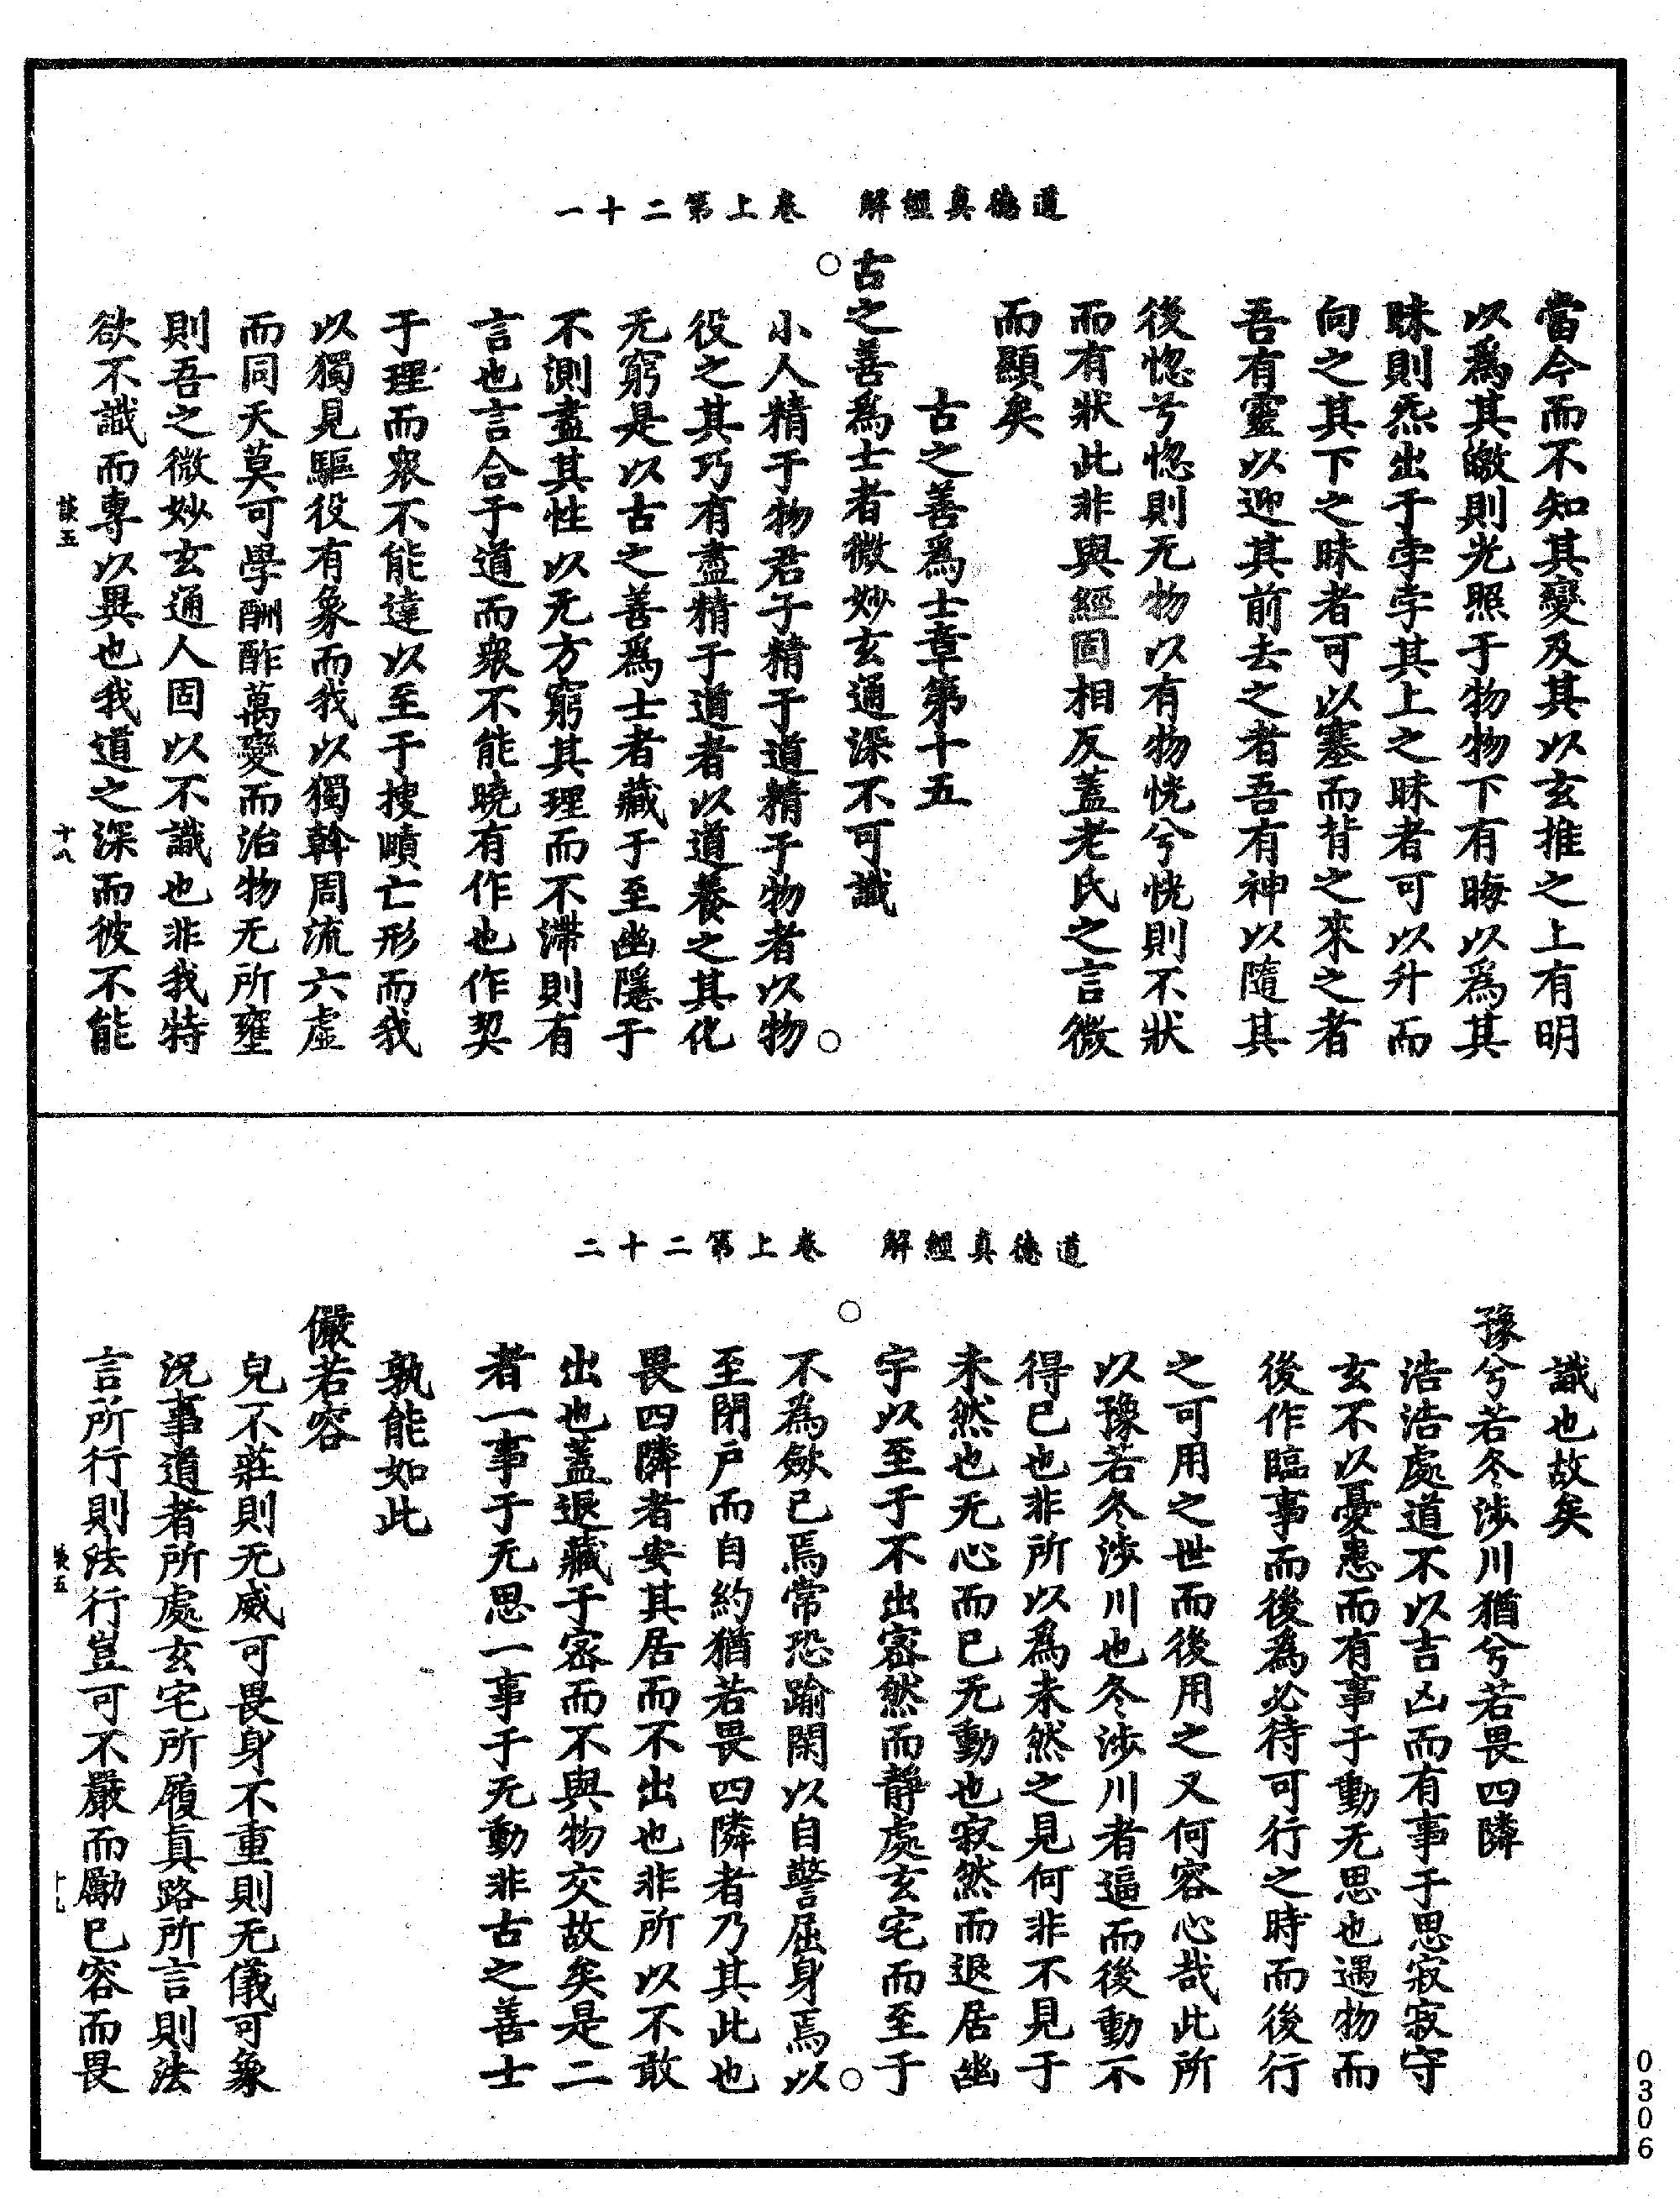 道德真經解　卷上第二十一
當今而不知其變及其以玄推之上有明
以爲其皦則光照于物物下有晦以爲其
昧則炁出于孛孛其上之昧者可以升而
向之其下之昧者可以塞而背之來之者
吾有靈以迎其前去之者吾有神以隨其
後惚兮惚則无物以有物恍兮恍則不狀
而有狀此非與經固相反蓋老氏之言微
而顯矣
古之善爲士章第十五
古之善爲士者微妙玄通深不可識
小人精于物君子精于道精于物者以物
役之其巧有盡精于道者以道養之其化
无窮是以古之善爲士者藏于至幽隱于
不測盡其性以无方窮其理而不滯則有
言也言合于道而衆不能曉有作也作契
于理而衆不能達以至于搜賾亡形而我
以獨見驅役有象而我以獨斡周流六虛
而同天莫可學酬酢萬變而治物无所壅
則吾之微妙玄通人固以不識也非我特
欲不識而專以異也我道之深而彼不能
談五
十八
道德真經解　卷上第二十二
識也故矣
豫兮若冬涉川猶兮若畏四隣
浩浩處道不以吉凶而有事于思寂寂守
玄不以憂患而有事于動无思也遇物而
後作臨事而後為必待可行之時而後行
之可用之世而後用之又何容心哉此所
以豫若冬涉川也冬涉川者逼而後動不
得已也非所以爲未然之見何非不見于
未然也无心而已无動也寂然而退居幽
宇以至于不出密然而靜處玄宅而至于
不為歛已焉常恐踰閑以自警屈身焉以
至閉戶而自約猶若畏四隣者乃其此也
畏四隣者安其居而不出也非所以不敢
出也蓋退藏于密而不與物交故矣是二
者一事于无思一事于无動非古之善士
孰能如此
儼若容
皃不莊則无威可畏身不重則无儀可象
況事道者所處玄宅所履真路所言則法
言所行則法行豈可不嚴而勵已容而畏
談五
十九
0306